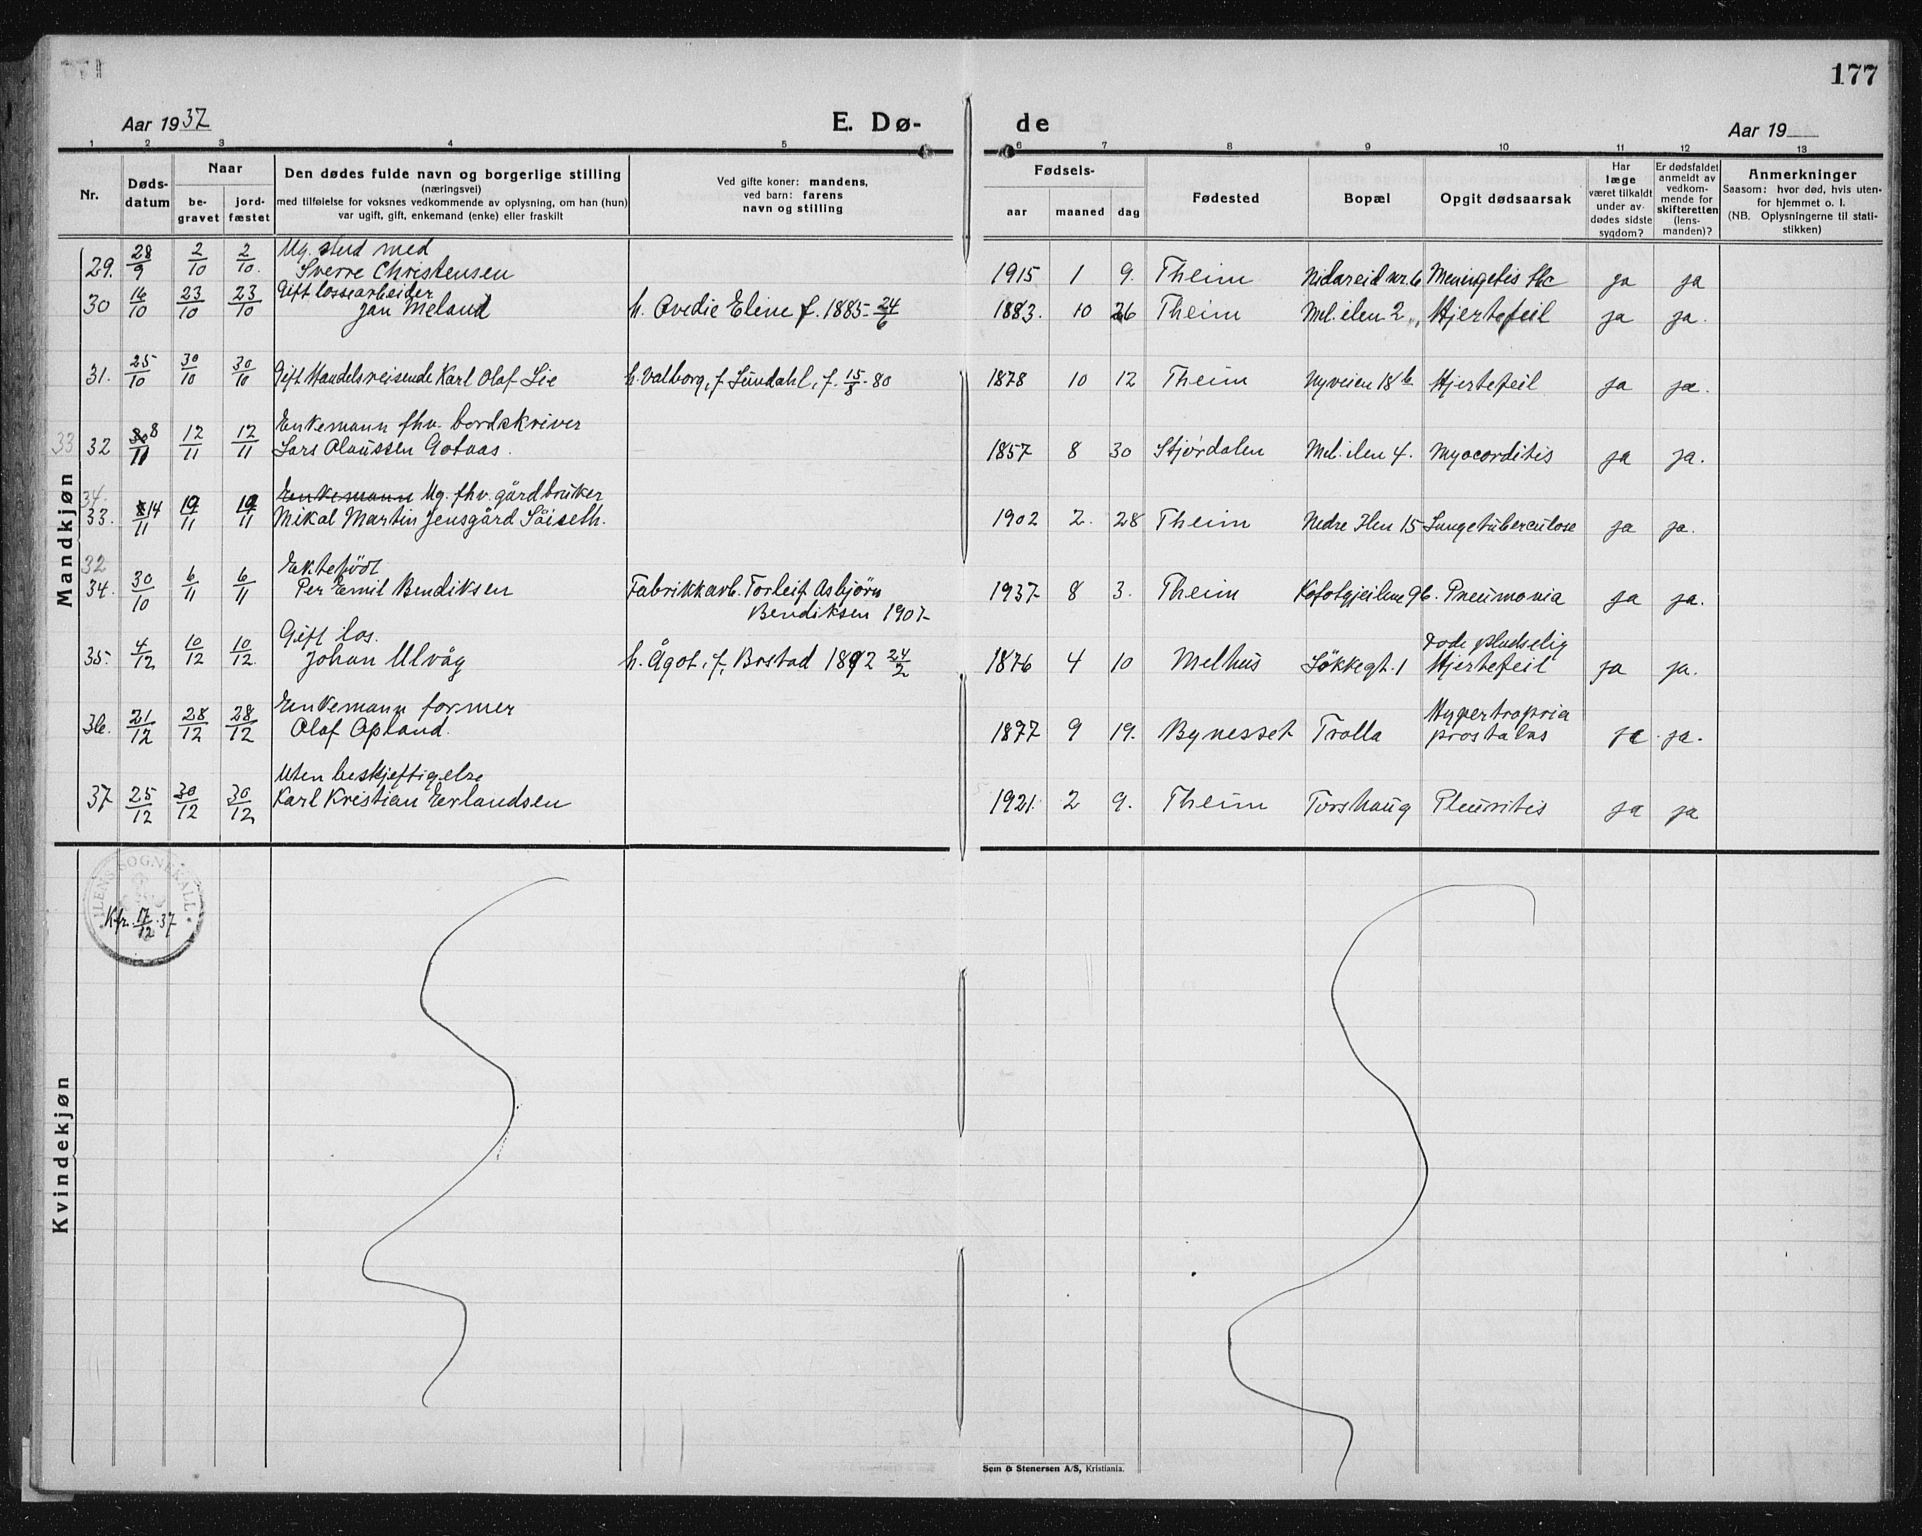 177
Aar 1937
E. Dø-
de
Aar 19
1 2 3 4 5 6 7 8 9 10 11 12 13
Nr.
Døds-
datum
Naar
be-
gravet
jord-
fæstet
Den dødes fulde navn og borgerlige stilling
(næringsvei)
med tilføielse for voksnes vedkommende av oplysning, om han (hun)
var ugift, gift, enkemand (enke) eller fraskilt
Ved gifte koner: mandens,
ved barn: farens
navn og stilling
Fødsels-
aar maaned dag
Fødested
Bopæl
Opgit dødsaarsak
Har
læge
været tilkaldt
under av-
dødes sidste
sygdom?
Er dødsfaldet
anmeldt av
vedkom-
mende for
skifteretten
(lens-
manden)?
Anmerkninger
Saasom: hvor død, hvis uten-
for hjemmet o. l.
(NB. Oplysningerne til stati-
stikken)
Mandkjøn
Ug. stud med
29. 28/9 2/10 2/10. Sverre Christensen 1915 1 9. Theim Nidareid nr. 6 Meningetis tbc ja ja
Gift lossearbeider
30 16/10 23/10 23/10 Jan Meland h. Ovedie Eline f. 1885-24/6 1883. 10 26 Theim Mel. ilen 2 Hjertefeil ja ja.
31. 25/10 30/10 30/10 Gift Handelsreisende Karl Olaf Lie h. Valborg, f. Lundahl, f. 15/8-80 1878 10 12 Theim Nyveien 18 b Hjertefeil ja ja.
Enkemann fhv. bordskriver
33 32 30 8/11 12/11 12/11 Lars Olaussen Gotaas. 1857 8 30 Stjørdalen Mel. ilen 4. Myocorditis ja ja.
34. Enkemann Ug. fhv. gårdbruker
33. 14/11 19/11 19/11 Mikal Martin Jensgård Söiseth. 1902 2. 28 Theim Nedre Ilen 15 Lungetuberculose ja ja.
32 Ektefödt
34. 30/10 6/11 6/11 Per Emil Bendiksen Fabrikkarb. Torleif Asbjörn 1937 8 3. Theim Kofotgjeilene 9b. Pneumonia ja ja.
Bendiksen 1907-
Gift los. Døde pludselig
35. 4/12 10/12 10/12. Johan Ulvåg h. Ågot, f. Bostad 1892 24/2 1876 4 10 Melhus Løkkegt. 1 Hjertefeil ja ja.
Enkemann former Hypertropria
36. 21/12 28/12 28/12 Olaf Opland. 1877 9 19. Bynesset Trolla prostatas ja ja.
Uten beskjeftigelse
37 25/12 30/12 30/12 Karl Kristian Erlandsen 1921. 2 9. Theim Torshaug Pleuritis ja ja
ILENS SOGNEKALL
Kfr. 17/12.37
Kvindekjøn
Sem & Stenersen A/S, Kristiania.